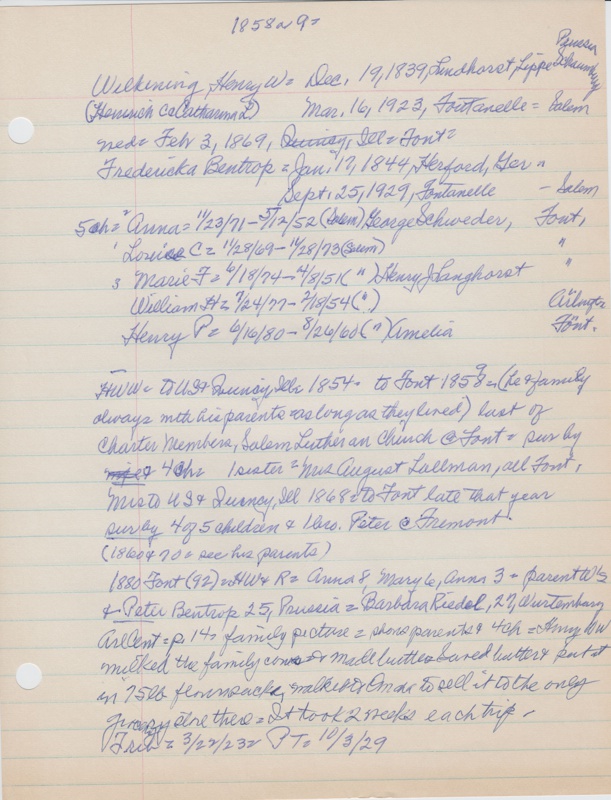 1858 or 9=
Prussia
Wilkening, Henry W= Dec. 19, 1839, Lindhorst, Lippe Schaumburg
(Heinrich C & Catharina L) Mar. 16, 1923, Fontanelle = Salem
med= Feb 3, 1869, Quincy, Ill= Font=
Fredericka Bentrop = Jan. 17, 1844, Herford, Ger "
Sept. 25, 1929, Fontanelle - Salem
5 ch= " Anna= 11/23/71 - 5/12/52 (Salem) George Schweder, Font,
' Louise C= 11/28/69 - 11/28/73 (Salem) "
3 Marie F= 6/19/74 - 4/8/51 ( " ) Henry J Langhorst "
William H= 7/24/77 - 2/18/54 ( " ) Arlington
Henry P= 6/16/80 - 8/26/60 ( " ) Amelia Font.
HWW= to US & Quincy, Ill= 1854. to Font 1858/9= (he & family
always with his parents = as long as they lived) last of
Charter Members, Salem Lutheran Church @ Font= sur by
4 ch= 1 sister = Mrs August Lallman, all Font.
Mrs to US & Quincy, Ill 1868= to Font late that year
sur by 4 of 5 children & 1 bro. Peter @ Fremont
(1860 & 70 = see his parents)
1880 Font (92)= HW & R= Anna 8, Mary 6, Anna 3 + parent W's
& Peter Bentrop 25, Prussia = Barbara Riedel, 27, Wurtemburg
Arl Cent= p. 14= family picture = shows parents & 4 ch= Henry WW
milked the family cows & made butter saved butter & put it
in 75 lb flour sacks, walked to Omaha to sell it to the only
grocery store there= It took 2 weeks each trip.
Trib= 3/22/23= PT= 10/3/29